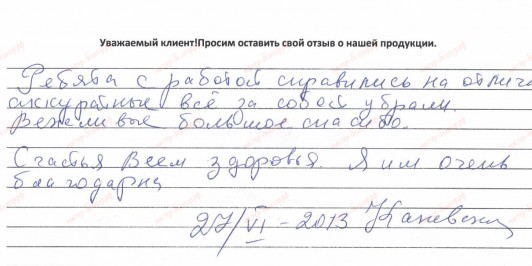 Уважаемый клиент!Просим оставить свой отзыв о нашей продукции.
Ребята с работой справились на отлична
аккуратные всё за собой убрали.
Вежливые большое спасибо.
Счастья Всем здоровья. Я им очень
благодарна
27/VI - 2013